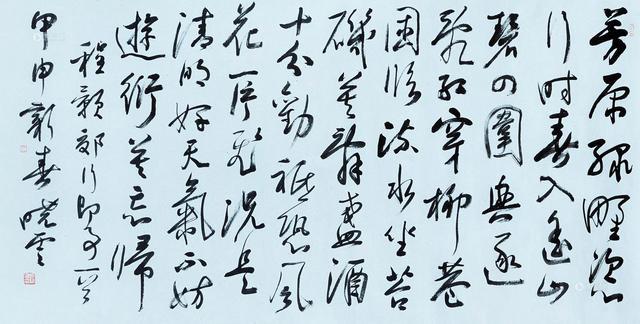 芳原綠野恣
行時春入遙山
碧四圍興逐
亂紅穿柳巷
困臨流水坐苔
磯莫辭盞酒
十分勸祗恐風
花一片飛況是
清明好天氣不妨
遊衍莫忘歸
程顥郊行即事一首
甲申新春曉雲